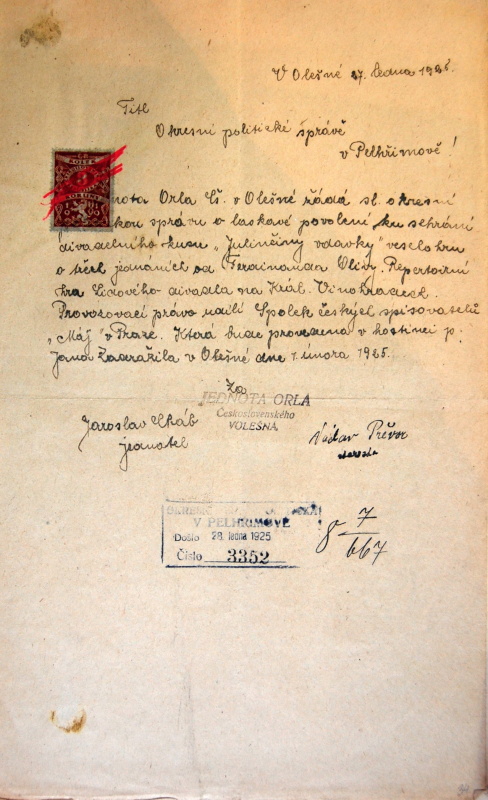 V Olešné 27. ledna 1925.
Titl
Okresní politické správě
v Pelhřimově!
KOLEK
KORUNY
1919
nota Orla Čs. v Olešné žádá sl. okresní
kou správu o laskavé povolení ku sehrání
divadelního kusu „Julinčiny vdavky" veselohru
o třech jednáních od Ferdinanda Olivy. Repertoirní
hra Lidového divadla na Král. Vinohradech.
Provozovací právo udílí Spolek českých spisovatelů
„Máj" v Praze. Která bude provedena v hostinci p.
Jana Zadražila v Olešné dne 1. února 1925.
Za
JEDNOTA ORLA
Československého
VOLEŠNÁ
Jaroslav Cháb
jednatel
Václav Převor
starosta
V PELHŘIMOVĚ
Došlo 28. ledna 1925
Číslo 3352
8 7
667